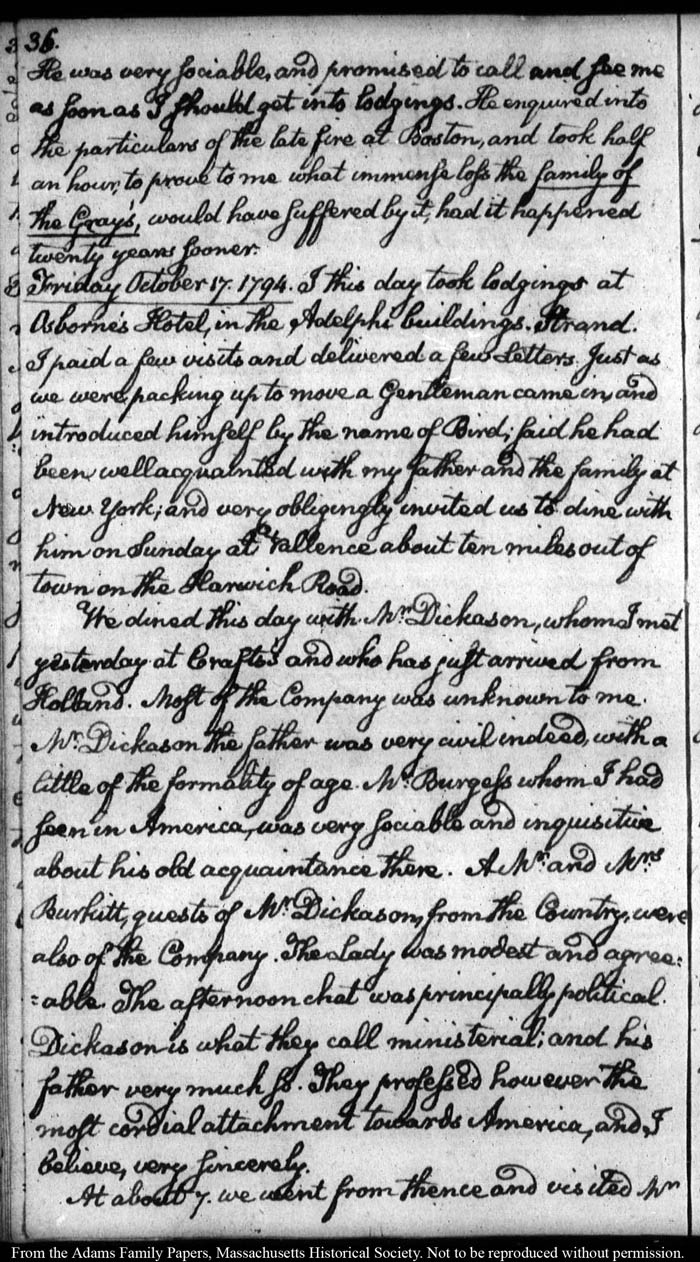 36.
He was very sociable, and promised to call and see me
as soon as I should get into lodgings. He enquired into
the particulars of the late fire at Boston, and took half
an hour, to prove to me what immense loss the family of
the Gray's, would have suffered by it, had it happened
twenty years sooner.
Friday October 17. 1794. I this day took lodgings at
Osborne's Hotel, in the Adelphi buildings. Strand.
I paid a few visits and delivered a few Letters. Just as
we were packing up to move a Gentleman came in, and
introduced himself by the name of Bird; said he had
been well acquainted with my father and the family at
New York; and very obligingly invited us to dine with
him on Sunday at Vallence about ten miles out of
town on the Harwich Road.
We dined this day with Mr. Dickason, whom I met
yesterday at Crafts's and who has just arrived from
Holland. Most of the Company was unknown to me.
Mr. Dickason the father was very civil indeed, with a
little of the formality of age. Mr. Burgess whom I had
seen in America, was very sociable and inquisitive
about his old acquaintance there. A Mr. and Mrs.
Burkitt, guests of Mr. Dickason, from the Country, were
also of the Company. The Lady was modest and agree:
:able. The afternoon chat was principally political.
Dickason is what they call ministerial; and his
father very much so. They professed however the
most cordial attachment towards America, and, I
believe, very sincerely.
At about 7. we went from thence and visited Mr.
From the Adams Family Papers, Massachusetts Historical Society. Not to be reproduced without permission.